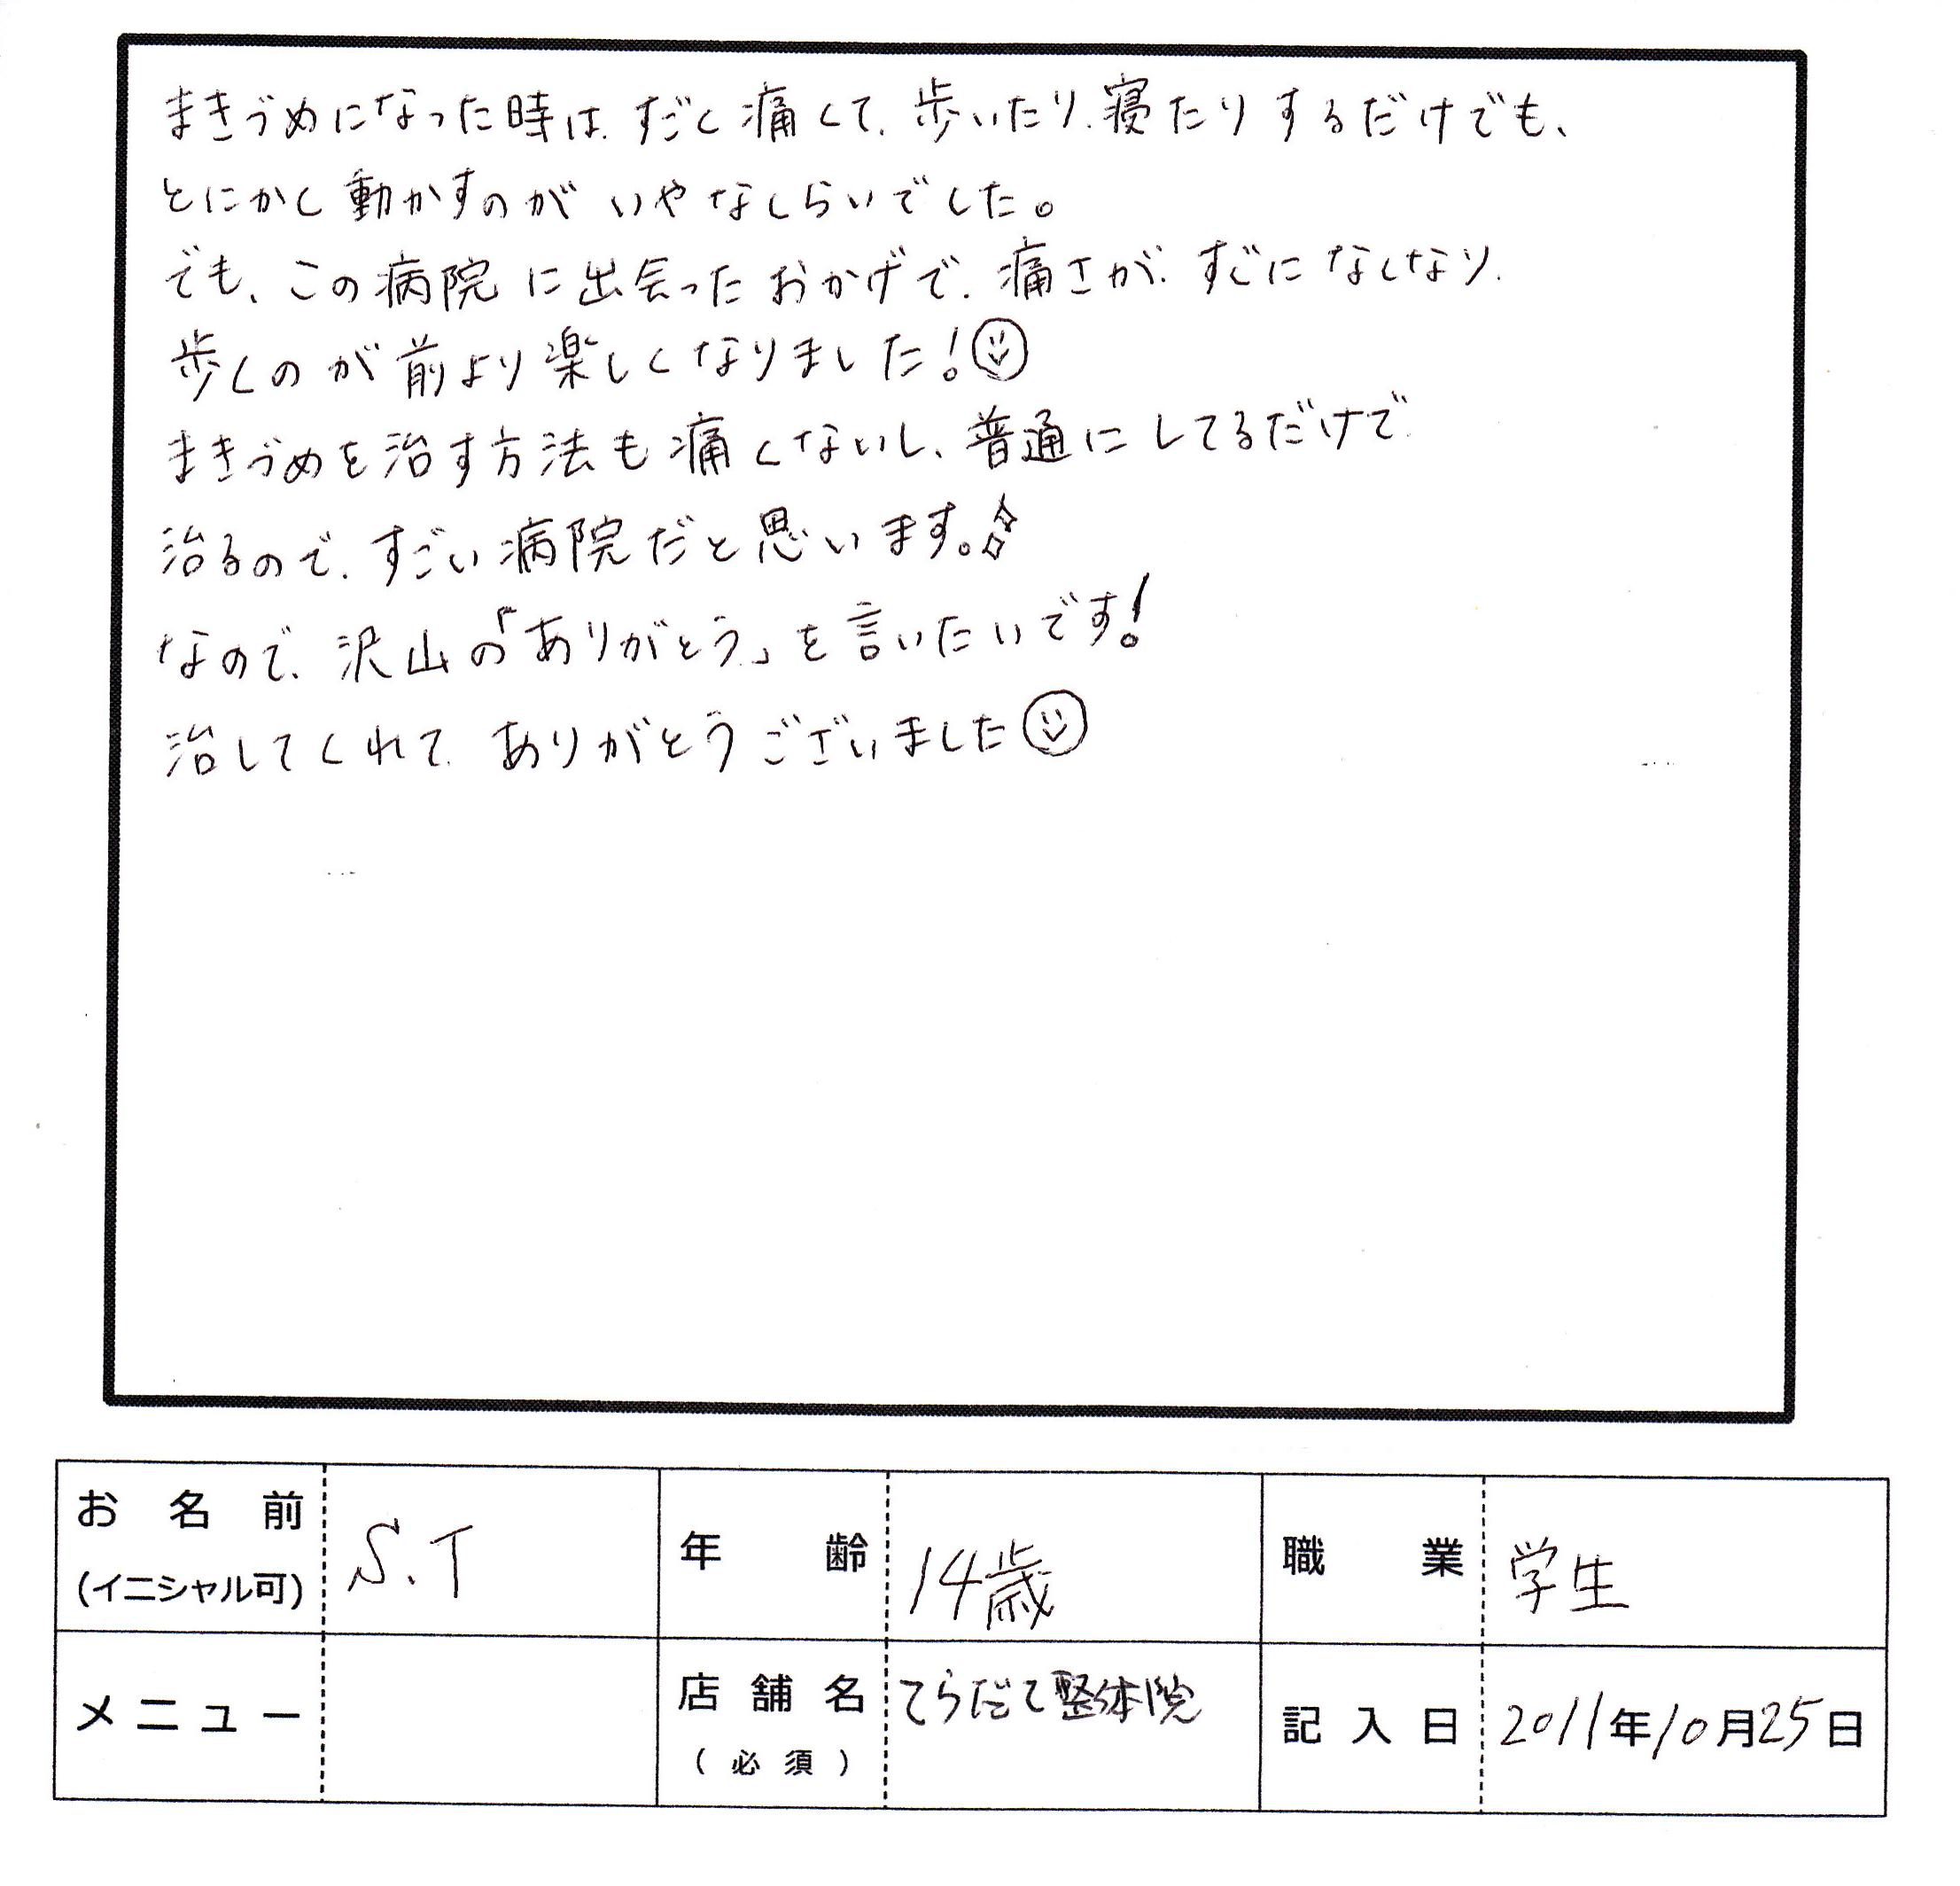 まきづめになった時は、すごく痛くて、歩いたり、寝たりするだけでも、
とにかく動かすのがいやなくらいでした。
でも、この病院に出会ったおかげで、痛さが、すぐになくなり、
歩くのが前より楽しくなりました!
まきづめを治す方法も痛くないし、普通にしてるだけで、
治るので、すごい病院だと思います。
なので、沢山の「ありがとう」を言いたいです!
治してくれて、ありがとうございました
お名前 S.T 年齢 14歳 職業 学生
(イニシャル可)
メニュー 店舗名 てらだて整体院 記入日 2011年10月25日
(必須)